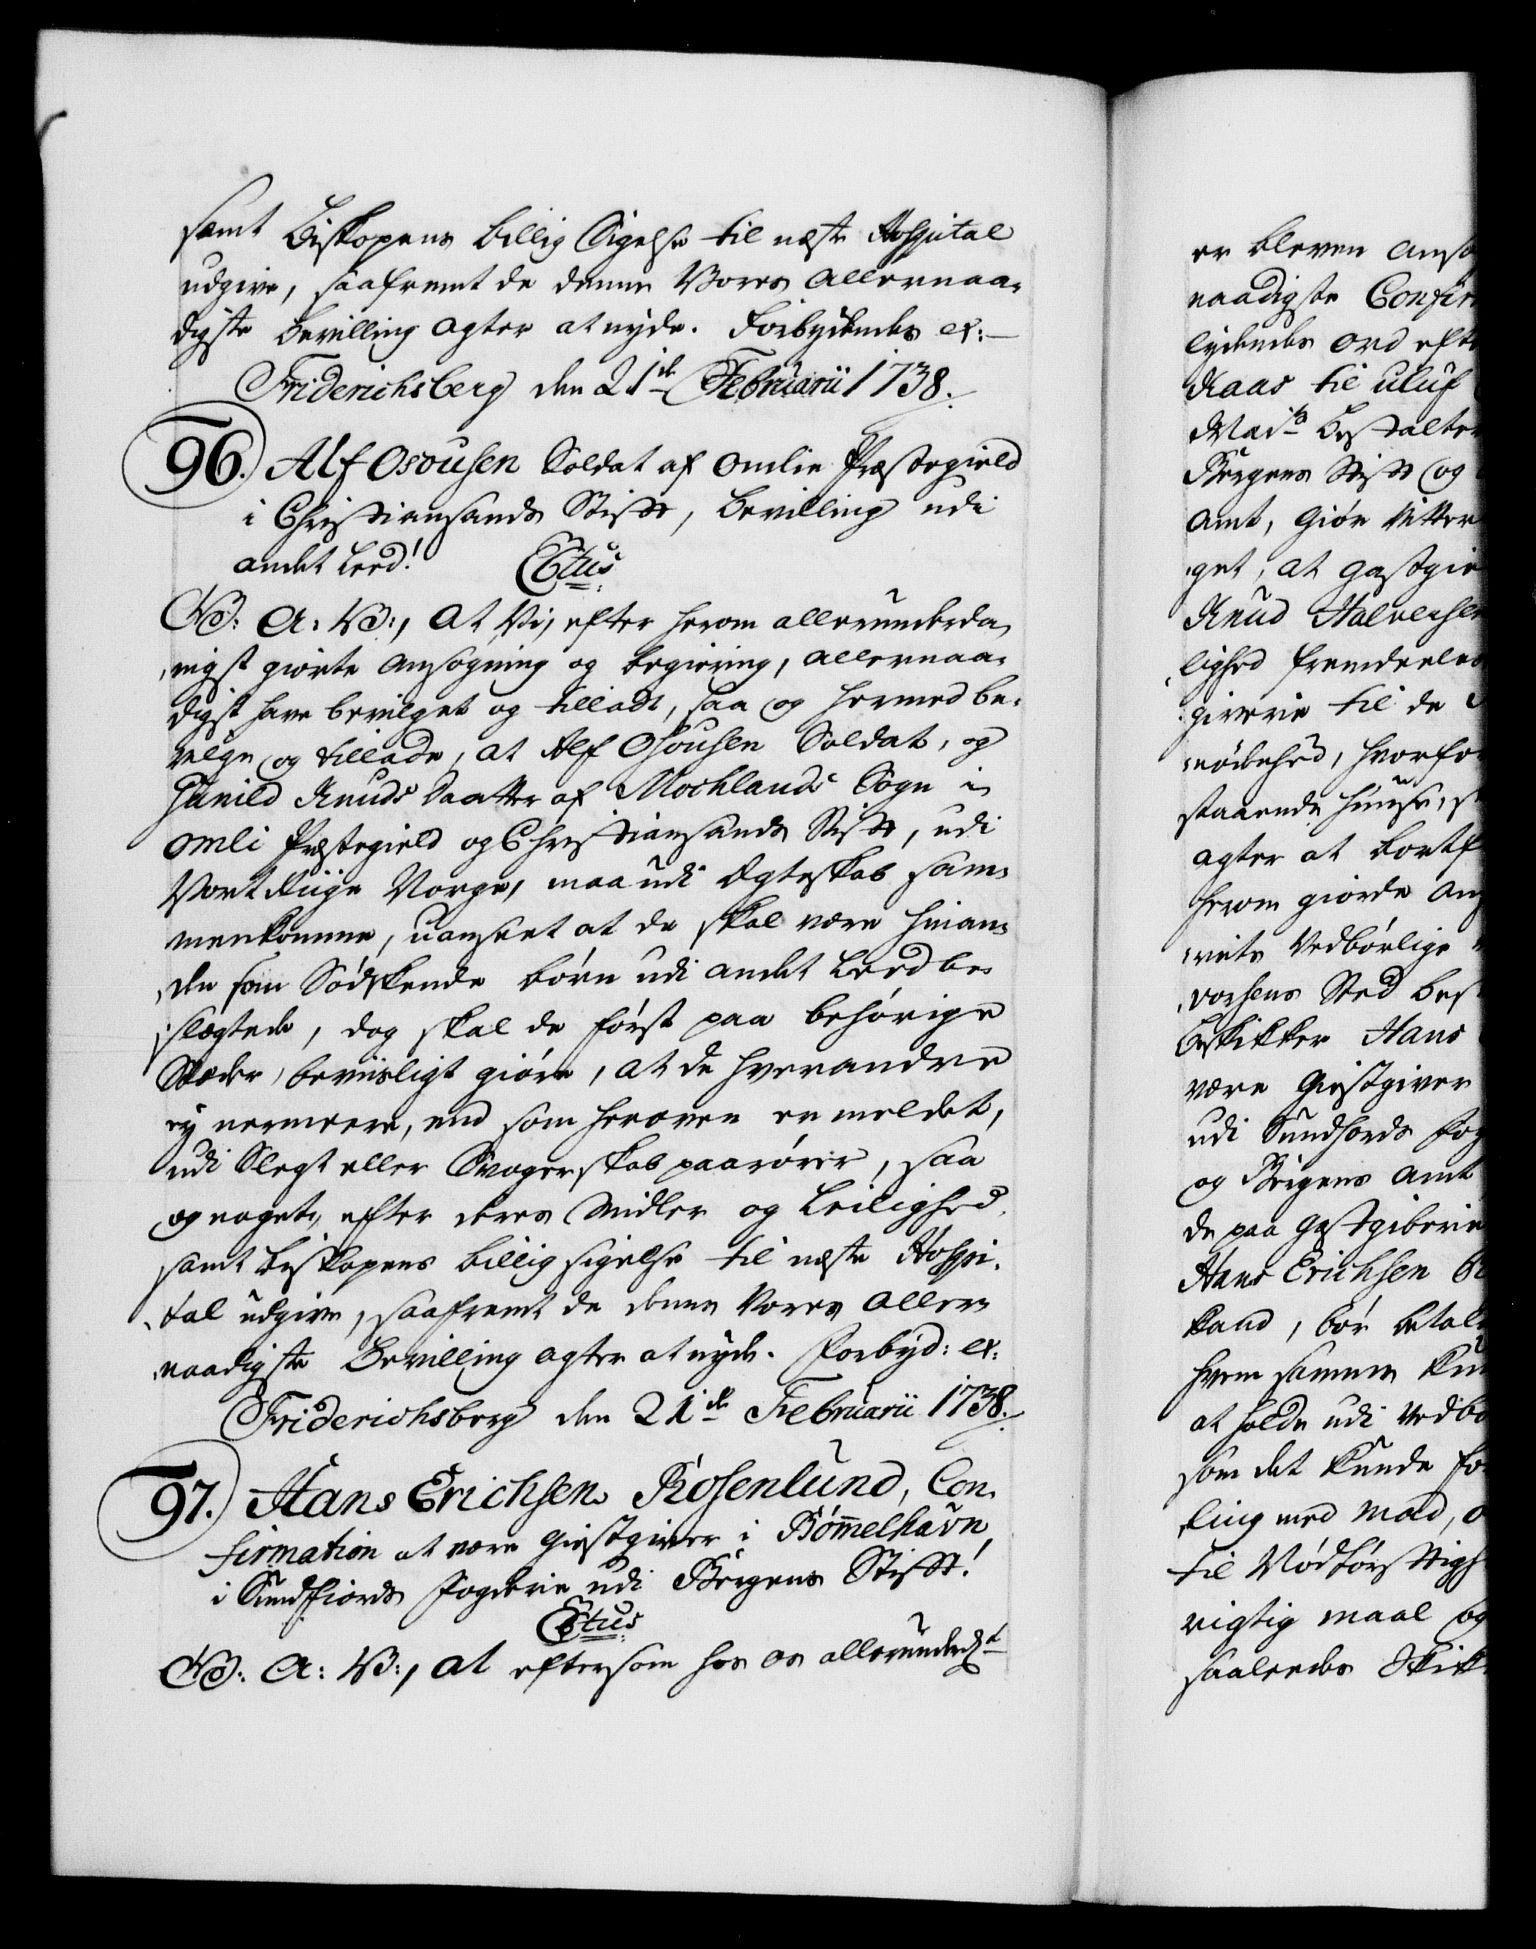 samt Biskopens billig Sigelse til næste Hospital
udgive, saafremt de denne Vores allernaa-
digste Bevilling agter at nyde. Forbydendes etc:
Friderichsberg den 21de Februarii 1738.
96. Alf Osousen Soldat af Omlie Præstegield
i Christiansands Stift, Bevilling udi
andet Leed!
CStus
G: A: V:, at Vi, efter herom allerunderda-
nigst giorte Ansøgning og begiering, allernaa-
digst have bevilget og tilladt, saa og hermed be-
vilge og tillade, at Alf Osousen Soldat, og
Gunild Knuds Daatter af Mochlands Sogn i
Omli Præstegield og Christiansands Stift, udi
Vort Riige Norge, maa udi Ægteskab sam-
menkomme, uanseet at de skal være hinan-
den som Sødskende børn udi andet Leed be-
slægtede, dog skal de først paa behørige
Stæder beviisligt giøre, at de hverandre
ey nermeere, end som heroven er meldet,
udi Slegt eller Svogerskab paarører, saa
og noget, efter deres Midler og Leilighed,
samt Biskopens billig sigelse til næste Hospi-
tal udgive, saafremt de denne Vores aller-
naadigste Bevilling agter at nyde. Forbyd: etc:
Friderichsberg den 21de Februarii 1738.
97. Hans Erichsen Rosenlund, Con-
firmation at være Giestgiver i Bømmelhavn,
i Sundfiords Fogderie udi Bergens Stift!
CStus
G: A: V:, at eftersom hos os allerunderdst
er bleven ansø
naadigste Confir
lydendes Ord efte
Kaas til Uluf
Maits Bestalter
Bergens Stift og
Amt, Giør Vitter
get, at Gastgie
Knud Halversen
lighed fremdeeles
giverie til de
nødehed, hvorfor
staaende Huuse, s
agter at bortf
herom giorde An
riets Vedbørlige
vorsens Sted bes
beskikker Hans
være Giestgiver
udi Sundfiords Fog
og Bergens Amt
de paa Gæstgiberie
Hans Erichsen
kand, bør betale
hvem samme kun
at holde udi Vedbø
som det kunde for
ling med Mad, O
til Nødtørfftigh
rigtig Maal og
saaleedes Skikk